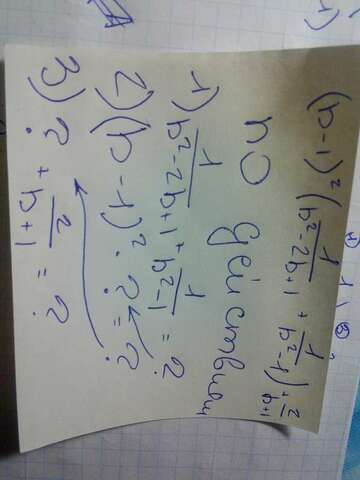 (b-1)² (1/(b²-2b+1) + 1/(b²-1)) + 2/(b+1)
по действиям
1) 1/(b²-2b+1) + 1/(b²-1) = ?
2) (b-1)² · ? = ?
3) ? + 2/(b+1) = ?